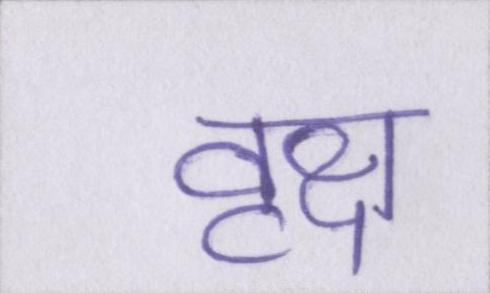 वृक्ष